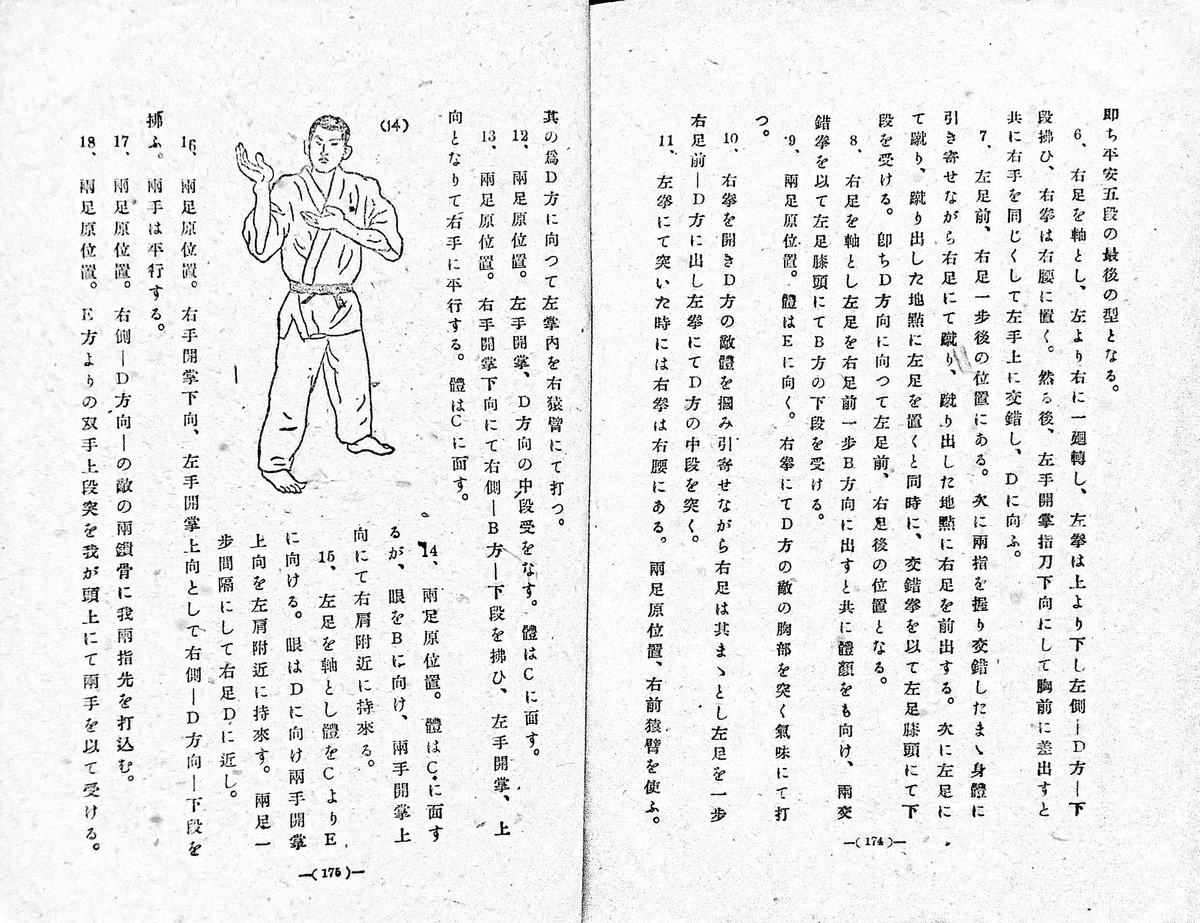 即ち平安五段の最後の型となる。
6、右足を軸とし、左より右に一廻轉し、左拳は上より下し左側―D方―下
段拂ひ、右拳は右腰に置く。然る後、左手開掌指刀下向にして胸前に差出すと
共に右手を同じくして左手上に交錯し、Dに向ふ。
7、左足前、右足一步後の位置にある。次に兩指を握り交錯したまゝ身體に
引き寄せながら右足にて蹴り、蹴り出した地點に右足を前出する。次に左足に
て蹴り、蹴り出した地點に左足を置くと同時に、交錯拳を以て左足膝頭にて下
段を受ける。卽ちD方向に向つて左足前、右足後の位置となる。
8、右足を軸とし左足を右足前一步B方向に出すと共に體顏をも向け、兩交
錯拳を以て左足膝頭にてB方の下段を受ける。
9、兩足原位置。體はEに向く。右拳にてD方の敵の胸部を突く氣味にて打
つ。
10、右拳を開きD方の敵體を掴み引寄せながら右足は其まゝとし左足を一步
右足前―D方に出し左拳にてD方の中段を突く。
11、左拳にて突いた時には右拳は右腰にある。兩足原位置、右前猿臂を使ふ。
―( 174 )―
其の爲D方に向つて左掌內を右猿臂にて打つ。
12、兩足原位置。左手開掌、D方向の中段受をなす。體はCに面す。
13、兩足原位置。右手開掌下向にて右側―B方―下段を拂ひ、左手開掌、上
向となりて右手に平行する。體はCに面す。
(14)
14、兩足原位置。體はCに面す
るが、眼をBに向け、兩手開掌上
向にて右肩附近に持來る。
15、左足を軸とし體をCよりE
に向ける。眼はDに向け兩手開掌
上向を左肩附近に持來す。兩足一
步間隔にして右足Dに近し。
16、兩足原位置。右手開掌下向、左手開掌上向として右側―D方向―下段を
拂ふ。兩手は平行する。
17、兩足原位置。右側―D方向―の敵の兩鎖骨に我兩指先を打込む。
18、兩足原位置。E方よりの双手上段突を我が頭上にて兩手を以て受ける。
―( 175 )―